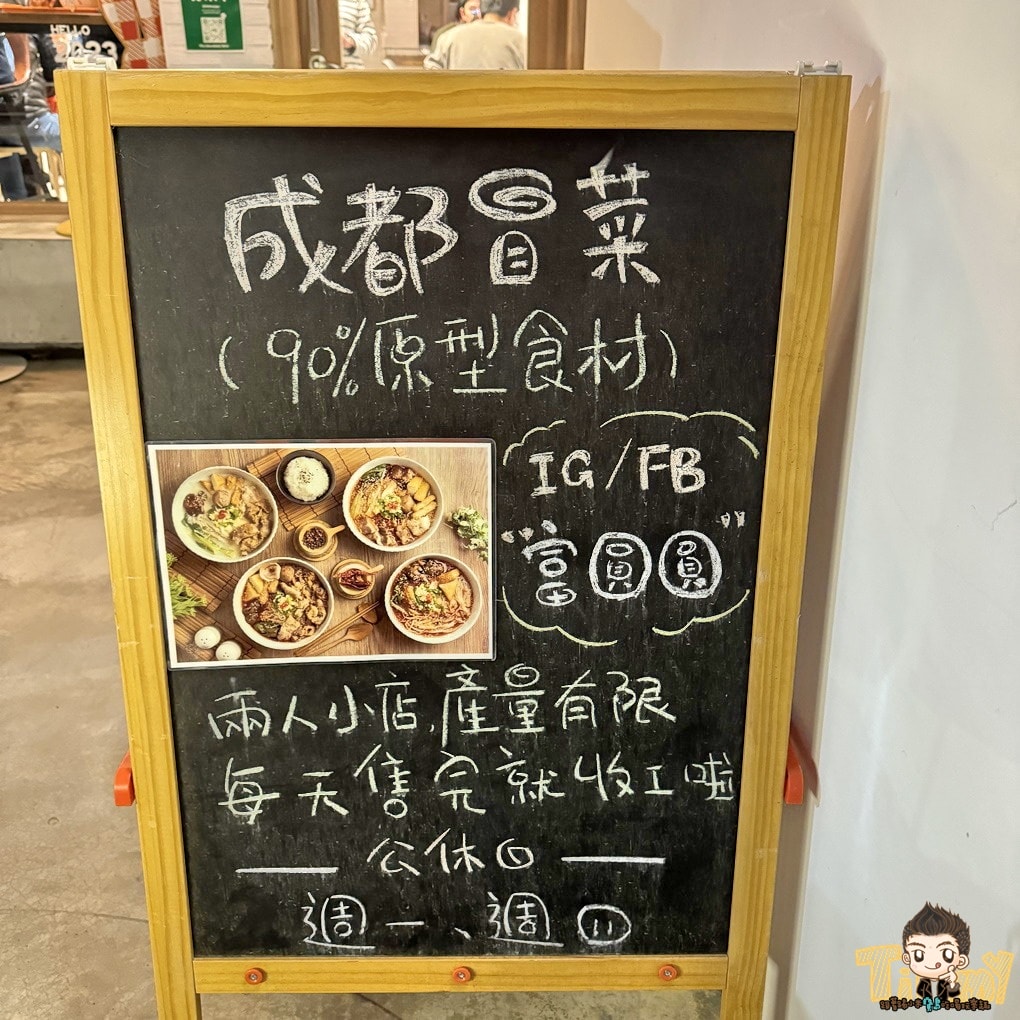 HELLO
2023
成都冒菜
(90%原型食材)
IG/FB
"富圓圓"
兩人小店,產量有限
每天售完就收工啦
公休日
週一、週日